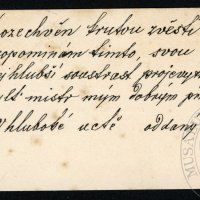 rozechvěn krutou zvěstí
vzpomínám tímto, svou
nejhlubší soustrast projevuji
mistr mým dobrým
V hluboké uctě oddaný
MUSA